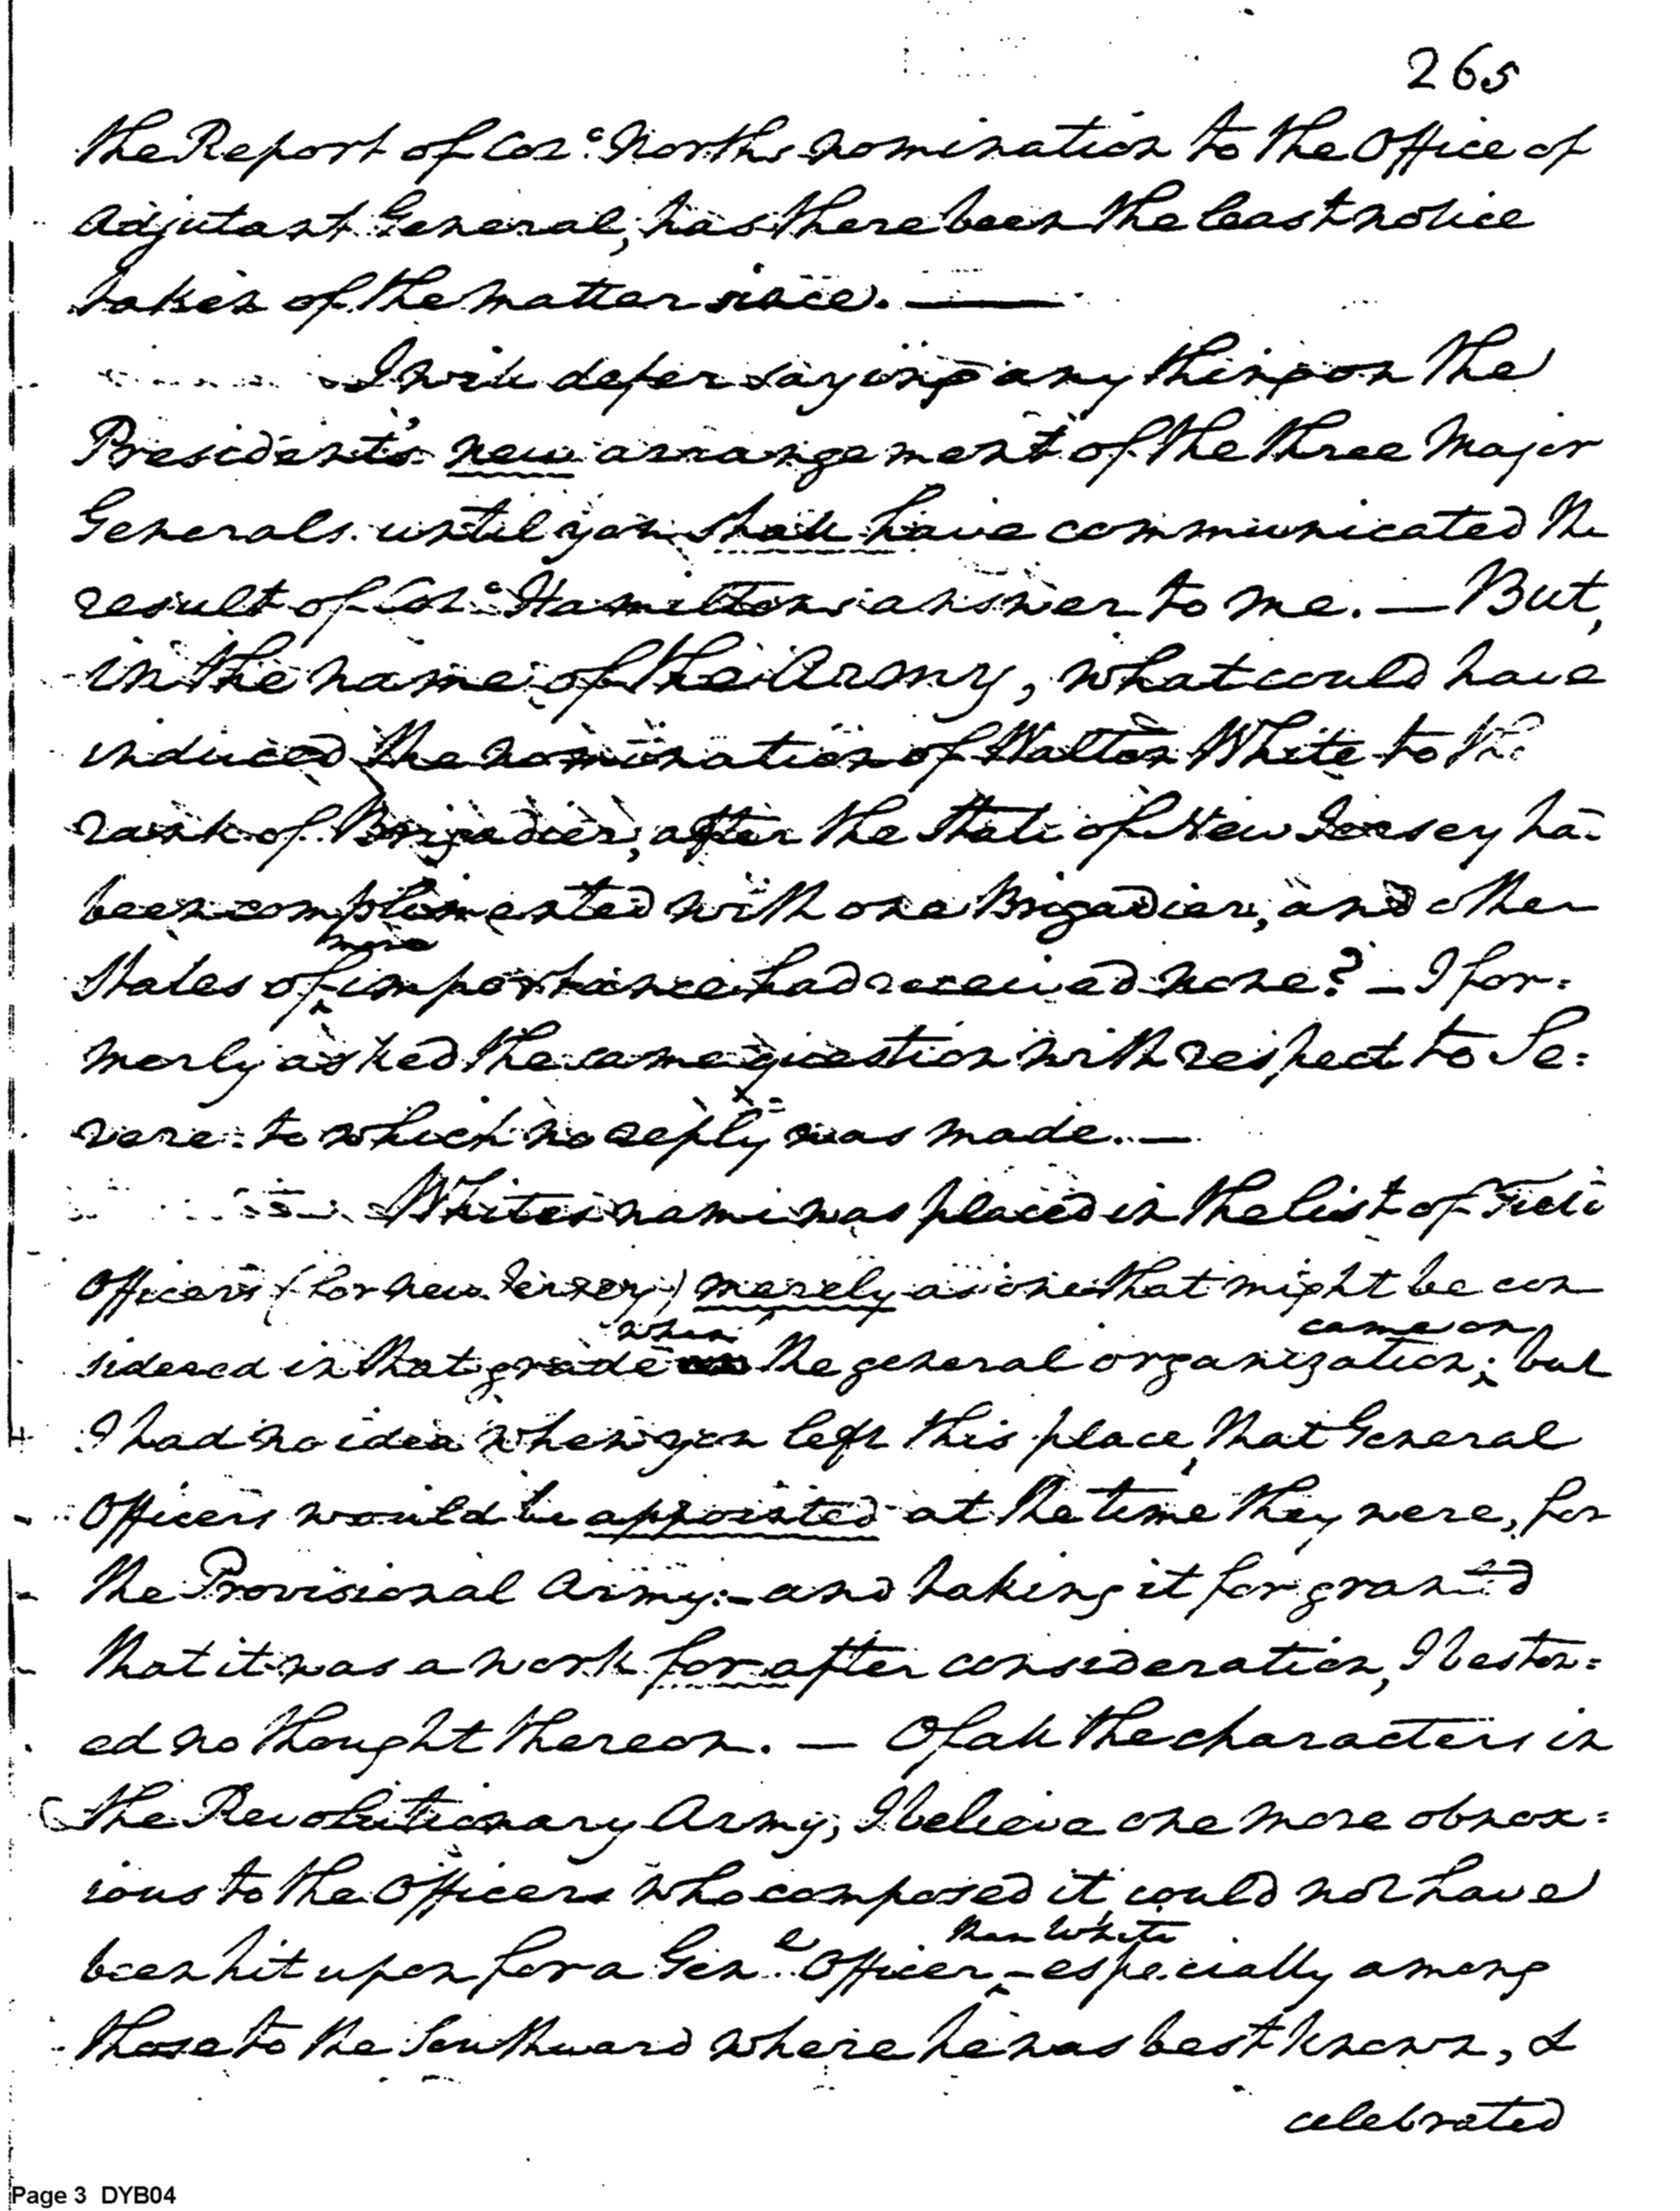 265
the Report of Colo. North's nomination to the Office of
Adjutant General, has there been the least notice
taken of the matter since. —
I will defer saying any thing on the
President's new arrangement of the three Major
Generals until you shall have communicated the
result of Colo. Hamilton's answer to me. — But,
in the name of the Army, what could have
induced the nomination of Walton White to the
rank of Brigadier, after the State of New Jersey had
been complimented with one Brigadier, and other
more
States of ^ importance had received none? — I for=
merly asked the same question with respect to Se=
vere: to which no reply was made. —
White's name was placed in the list of Field
Officers (for new Jersey) merely as one that might be con
when came on
sidered in that grade the general organization ^; but
I had no idea when you left this place, that General
Officers would be appointed at the time they were, for
the Provisional Army: — and taking it for granted
that it was a work for after consideration, I bestow=
ed no thought thereon. — Of all the characters in
the Revolutionary Army, I believe one more obnox=
ious to the Officers who composed it, could not have
than White
been hit upon for a Genl. Officer ^ — especially among
those to the Southward where he was best known, &
celebrated
Page 3 DYB04